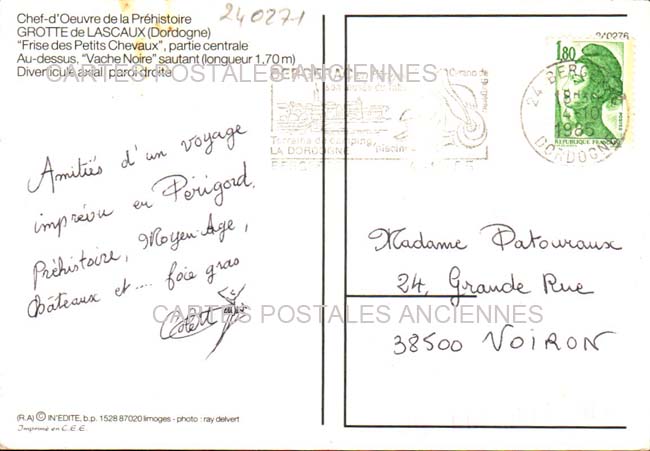 Chef-d'Oeuvre de la Préhistoire
GROTTE de LASCAUX (Dordogne)
"Frise des Petits Chevaux", partie centrale
Au-dessus, "Vache Noire" sautant (longueur 1,70 m)
Diverticule axial, paroi droite
240271
240276
1,80
24 BERG
18H
4-10
1985
DORDOGNE
REPUBLIQUE FRANC
POSTES
BERGERAC
Cyrano de
Bergerac
Terrains de camping,
LA DORDOGNE
Piscine
CARTES POSTALES ANCIENNES
Amitiés d'un voyage
imprévu en Périgord,
Préhistoire, Moyen Age,
Châteaux et .... foie gras
Madame Patouraux
24, Grande Rue
38500 VOIRON
CARTES POSTALES ANCIENNES
CARTES POSTALES ANCIENNES
(R.A) © IN'EDITE, b.p. 1528 87020 limoges - photo : ray delvert
Imprimé en C.E.E.